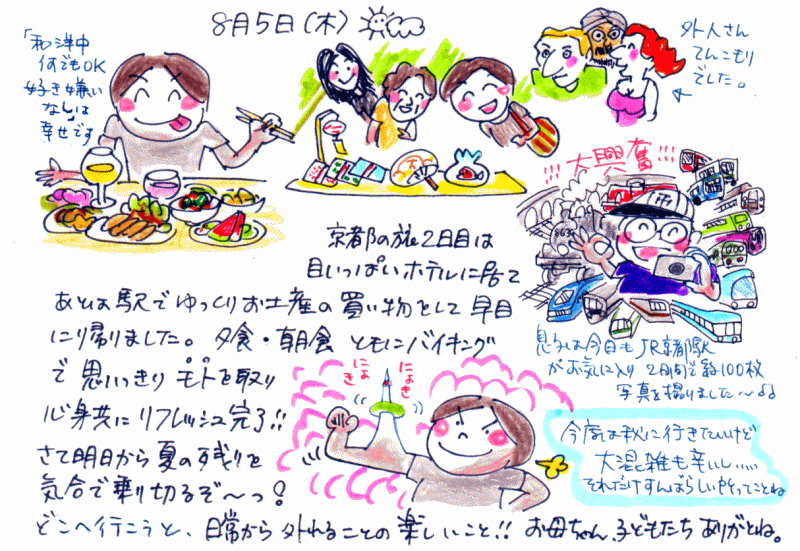 8月5日(木)
「和洋中
何でもOK
好き嫌い
なしは
幸せです
外人さん
てんこもり
でした。
!!!大興奮!!!
京都の旅2日目は
目いっぱいホテルに居て
あとは駅でゆっくりお土産の買い物をして早目
に帰りました。夕食・朝食ともにバイキング
で思いっきりモトを取り
心身共にリフレッシュ完了!!
さて明日から夏の残りを
気合で乗り切るぞ〜っ!
どこへ行こうと、日常から外れることの楽しいこと!!お母ちゃん、子どもたちありがとね。
にょき
にょき
息子は今日もJR京都駅
がお気に入り 2日間で約100枚
写真を撮りました〜♪♪
今度は秋に行きたいけど
大混雑も辛いし.....
それだけすんばらしいやってことね